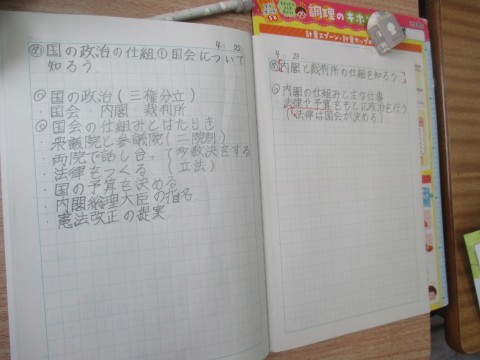 4. 23
㋱国の政治の仕組①国会について
知ろう
◎国の政治(三権分立)
・国会 内閣 裁判所
◎国会の仕組みとはたらき
・衆議院と参議院(二院制)
・両院で話し合って多数決をする
・法律をつくる (立法)
・国の予算を決める
・内閣総理大臣の指名
・憲法改正の提案
4. 23
内閣と裁判所の仕組を知ろう
◎内閣の仕組みと主な仕事
法律や予算をもとに政治を行う
(法律は国会が決める)
調理のキホン
計量スプーン・計量カップの